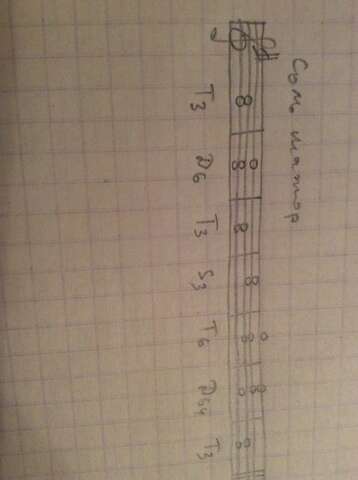 Соль мажор
T3 D6 T3 S3 T6 D64 T3